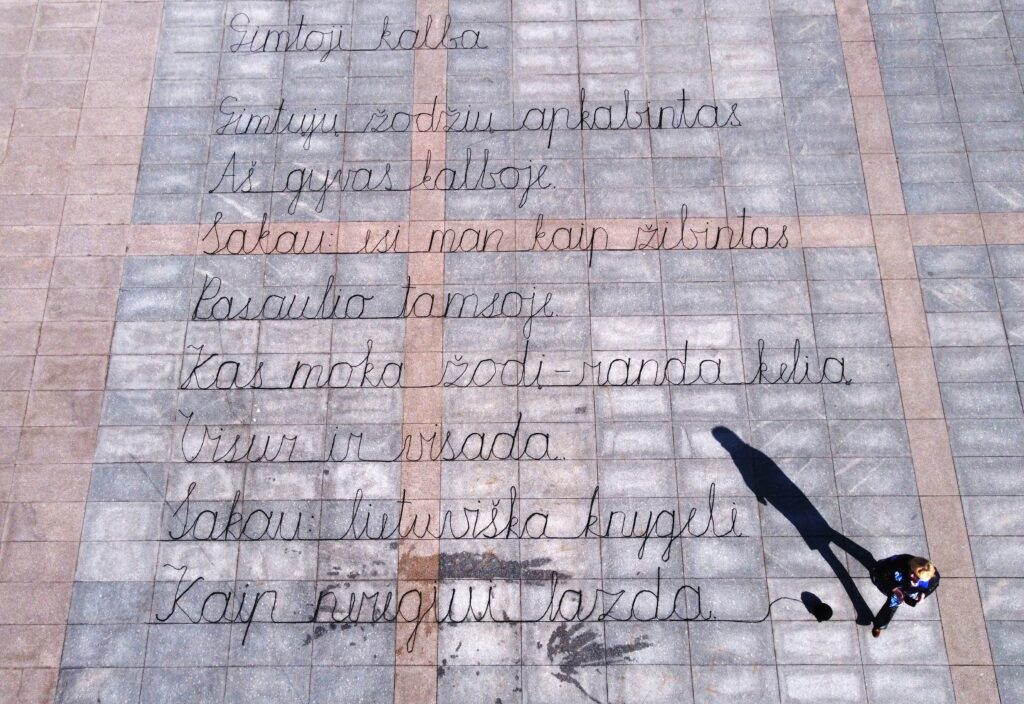 Gimtoji kalba
Gimtųjų žodžių apkabintas
Aš gyvas kalboje.
Sakau: esi man kaip žibintas
Pasaulio tamsoje.
Kas moka žodį – randa kelią
Visur ir visada.
Sakau: lietuviška knygelė
Kaip neregiui lazda.